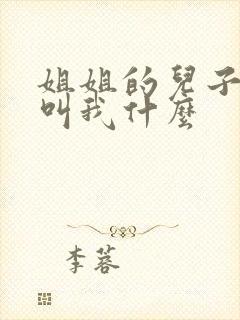 姐姐的兒子
叫我什麼
李蓉